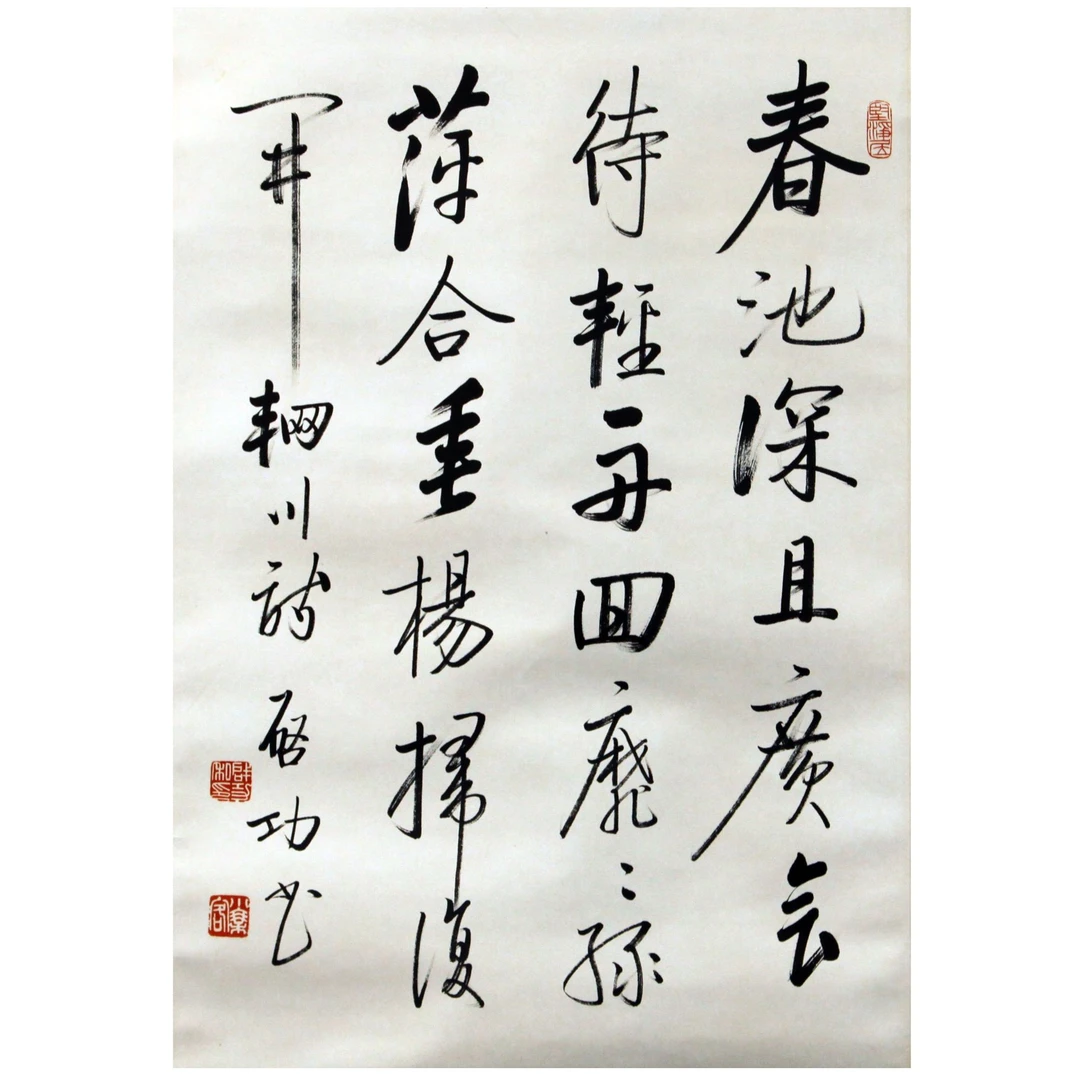 春池深且廣会
待輕舟回靡〻綠
萍合垂楊掃復
開 輞川詩 啓功书